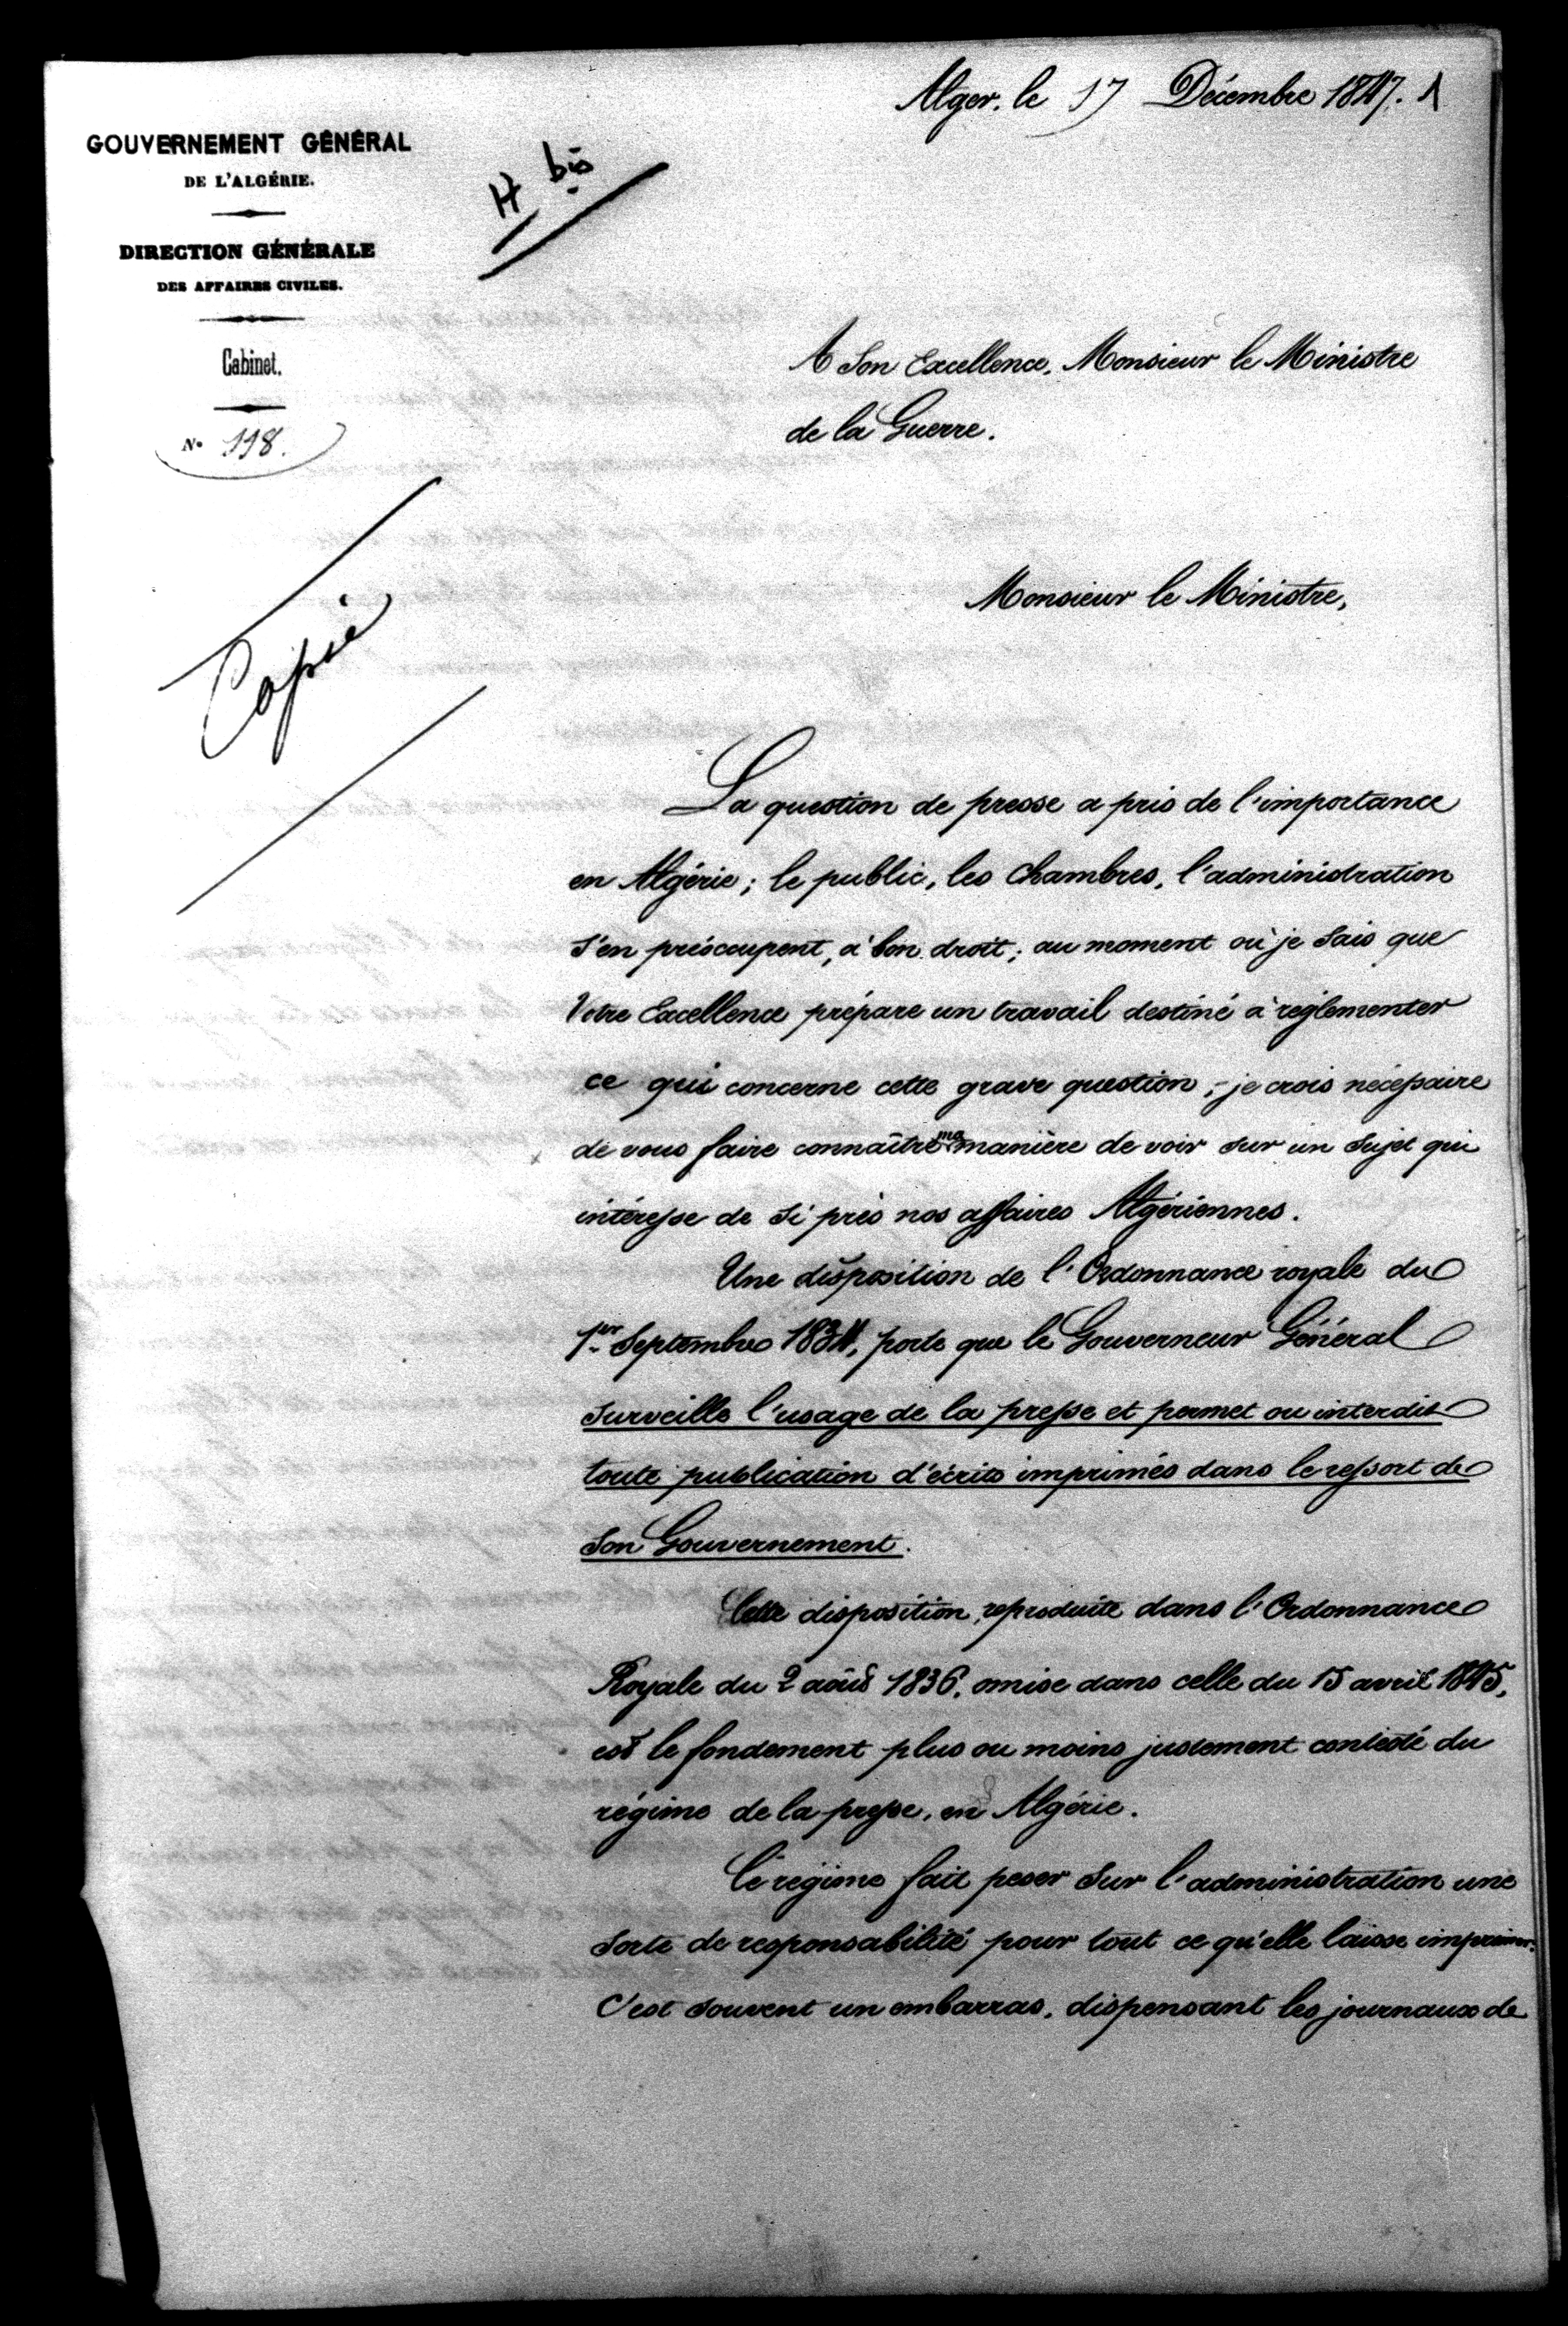 Alger, le 17 Décembre 1847. 1
GOUVERNEMENT GÉNÉRAL
DE L'ALGÉRIE.
DIRECTION GÉNÉRALE
DES AFFAIRES CIVILES.
Cabinet.
N° 118.
H bis
Copie
A Son Excellence, Monsieur le Ministre
de la Guerre.
Monsieur le Ministre,
La question de presse a pris de l'importance
en Algérie ; le public, les Chambres, l'administration
s'en préoccupent, à bon droit ; au moment où je sais que
Votre Excellence prépare un travail destiné à réglementer
ce qui concerne cette grave question, je crois nécessaire
de vous faire connaître ma manière de voir sur un sujet qui
intéresse de si près nos affaires Algériennes.
Une disposition de l'Ordonnance royale du
1er Septembre 1834, porte que le Gouverneur Général
surveille l'usage de la presse et permet ou interdit
toute publication d'écrits imprimés dans le ressort de
son Gouvernement.
Cette disposition, reproduite dans l'Ordonnance
Royale du 2 août 1836, omise dans celle du 15 avril 1845,
est le fondement plus ou moins justement contesté du
régime de la presse, en Algérie.
Ce régime fait peser sur l'administration une
sorte de responsabilité pour tout ce qu'elle laisse imprimer.
C'est souvent un embarras, dispensant les journaux de